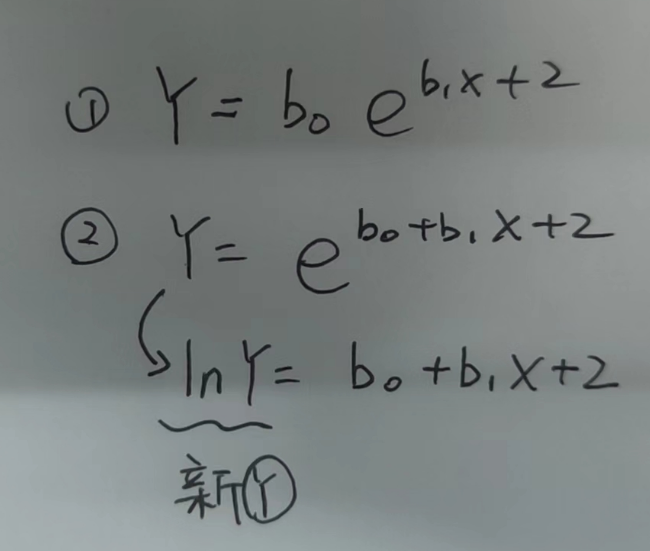 ① Y = b₀ e^{b₁x+2}
② Y = e^{b₀+b₁x+2}
ln Y = b₀ + b₁x + 2
新Ⓨ